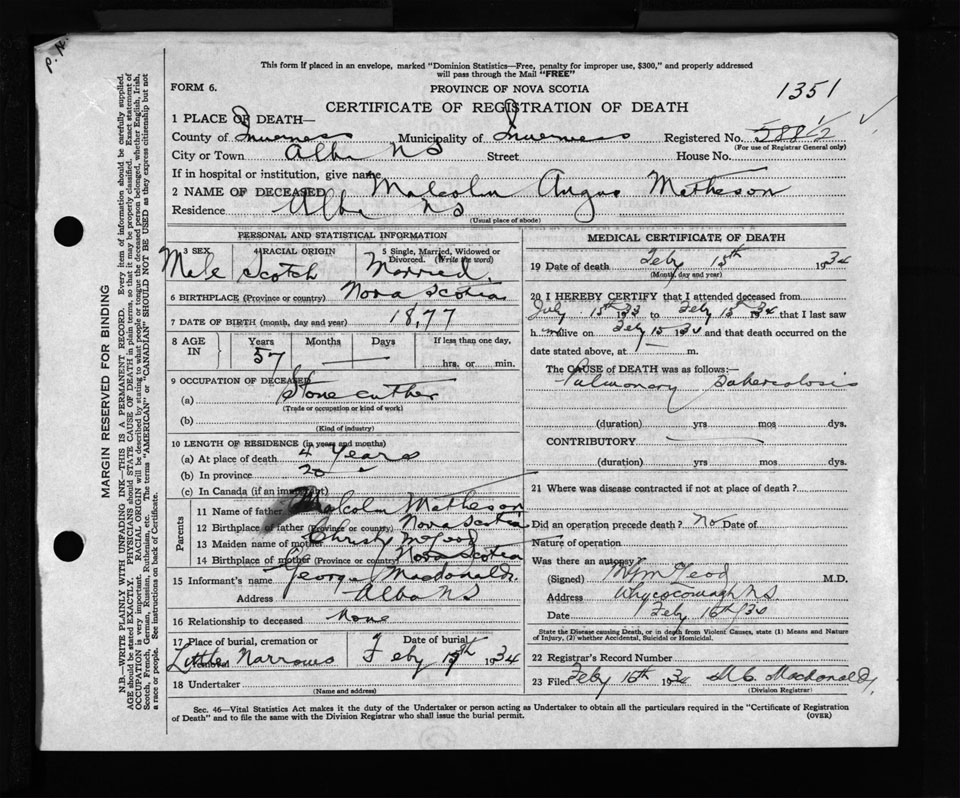 P. H.
MARGIN RESERVED FOR BINDING
N.B.—WRITE PLAINLY WITH UNFADING INK—THIS IS A PERMANENT RECORD. Every item of information should be carefully supplied.
AGE should be stated EXACTLY. PHYSICIANS should STATE CAUSE OF DEATH in plain terms, so that it may be properly classified. Exact statement of
OCCUPATION is very important. RACIAL ORIGIN will be described by stating to what people or tongue the deceased person belonged, whether English, Irish,
Scotch, French, German, Russian, Ruthenian, etc. The terms "AMERICAN" or "CANADIAN" SHOULD NOT BE USED as they express citizenship but not
a race or people. See instructions on back of Certificate.
This form if placed in an envelope, marked "Dominion Statistics—Free, penalty for improper use, $300," and properly addressed
will pass through the Mail "FREE"
FORM 6. PROVINCE OF NOVA SCOTIA 1351
CERTIFICATE OF REGISTRATION OF DEATH
1 PLACE OF DEATH—
County of Inverness Municipality of Inverness Registered No. 588 1/2
(For use of Registrar General only)
City or Town Alba NS Street House No.
If in hospital or institution, give name
2 NAME OF DECEASED Malcolm Angus Matheson
Residence Alba NS
(Usual place of abode)
PERSONAL AND STATISTICAL INFORMATION
3 SEX 4 RACIAL ORIGIN 5 Single, Married, Widowed or Divorced. (Write the word)
Male Scotch Married.
6 BIRTHPLACE (Province or country) Nova Scotia
7 DATE OF BIRTH (month, day and year) 1877
8 AGE IN Years Months Days If less than one day,
57 — hrs. or min.
9 OCCUPATION OF DECEASED
(a) Stone cutter
(Trade or occupation or kind of work)
(b)
(Kind of industry)
10 LENGTH OF RESIDENCE (in years and months)
(a) At place of death 4 Years
(b) In province 20 "
(c) In Canada (if an immigrant)
Parents
11 Name of father Malcolm Matheson
12 Birthplace of father (Province or country) Nova Scotia
13 Maiden name of mother Christy McLeod
14 Birthplace of mother (Province or country) Nova Scotia
15 Informant's name George Macdonald.
Address Alba NS
16 Relationship to deceased None
17 Place of burial, cremation or Date of burial
Little Narrows Feby 1934
18 Undertaker
(Name and address)
MEDICAL CERTIFICATE OF DEATH
19 Date of death Feby 15th 1934
(Month, day and year)
20 I HEREBY CERTIFY that I attended deceased from
July 15th 1933 to Feby 15th 1934 that I last saw
h im alive on Feby 15 1934 and that death occurred on the
date stated above, at — m.
The CAUSE of DEATH was as follows:—
Pulmonary Tuberculosis
(duration) yrs mos dys.
CONTRIBUTORY —
(duration) yrs. mos. dys.
21 Where was disease contracted if not at place of death?
Did an operation precede death? No Date of
Nature of operation
Was there an autopsy?
(Signed) McLeod M.D.
Address Whycocomagh N.S.
Date Feby 16th/34
State the Disease causing Death, or in death from Violent Causes, state (1) Means and Nature
of Injury, (2) whether Accidental, Suicidal or Homicidal.
22 Registrar's Record Number
23 Filed Feby 16th 1934 Macdonald,
(Division Registrar)
Sec. 46—Vital Statistics Act makes it the duty of the Undertaker or person acting as Undertaker to obtain all the particulars required in the "Certificate of Registration
of Death" and to file the same with the Division Registrar who shall issue the burial permit. (OVER)